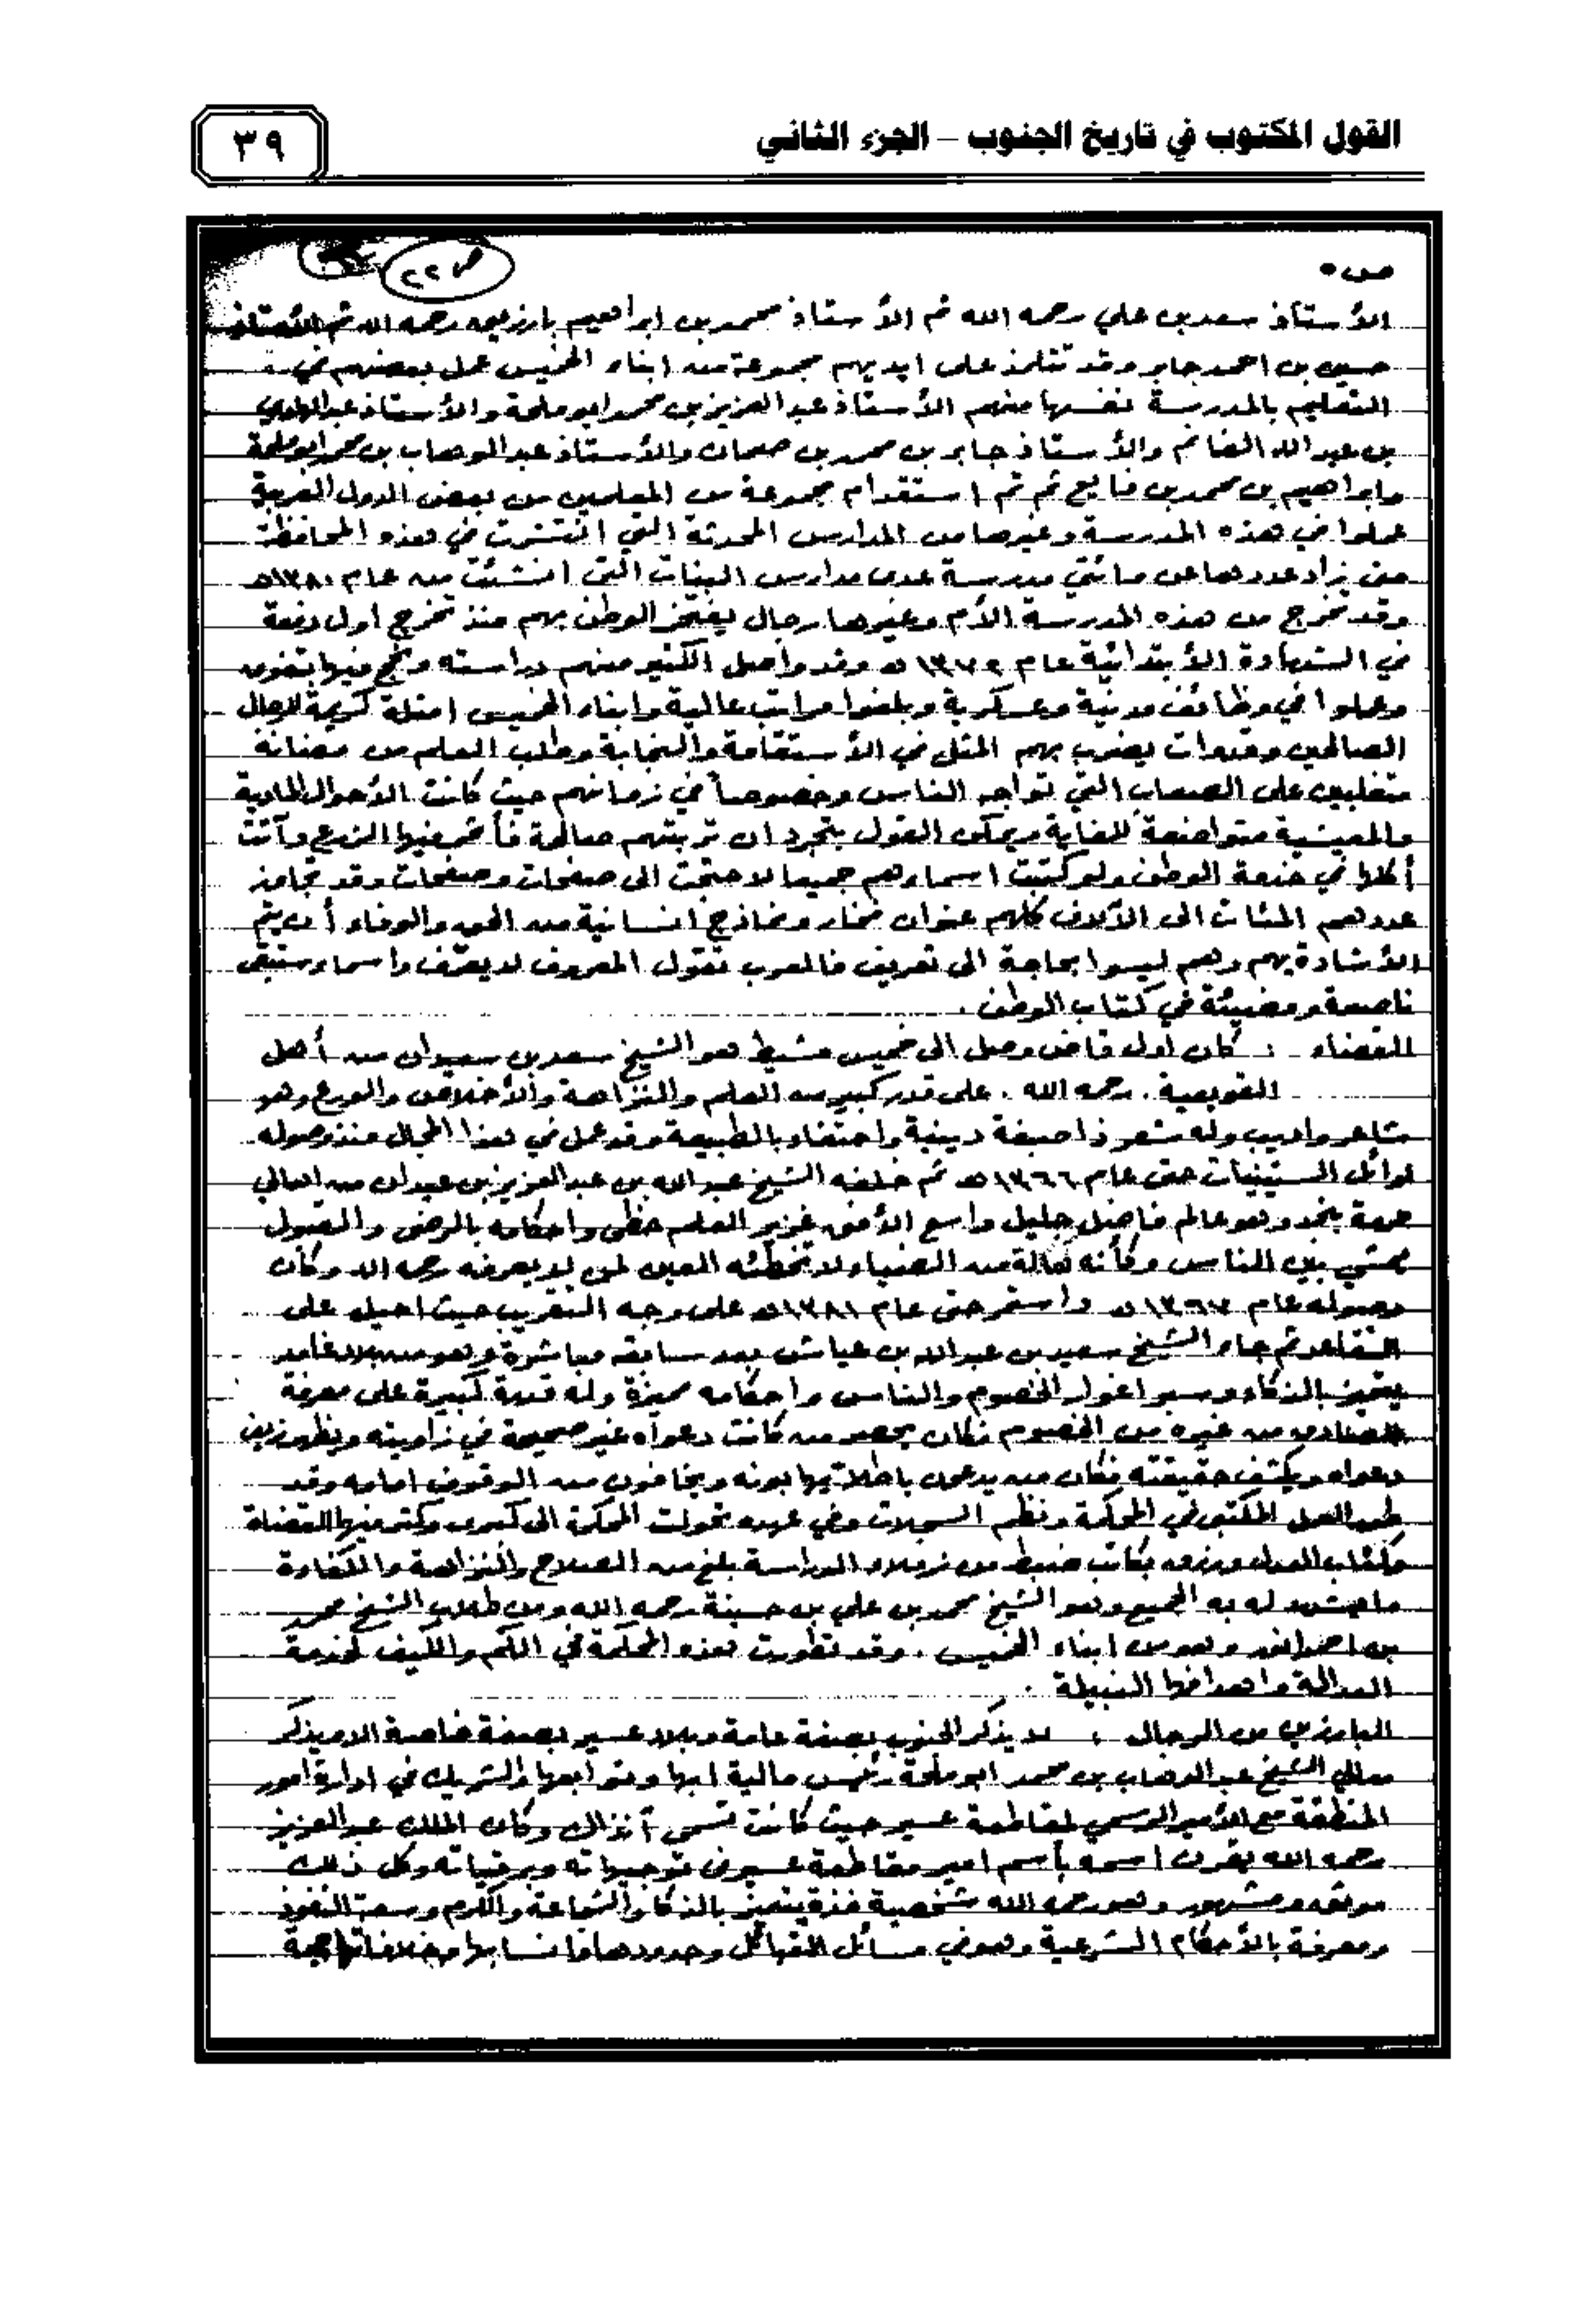 القول المكتوب في تاريخ الجنوب – الجزء الثاني
٣٩
ص ٥
ص ٢٢
الأستاذ سعد بن علي رحمه الله ثم الأستاذ محمد بن ابراهيم بارزيق رحمه الله ثم الأستاذ
حسين بن احمد جابر وقد تتلمذ على ايديهم مجموعة من ابناء الخميس عمل بعضهم في
التعليم بالمدرسة نفسها منهم الأستاذ عبدالعزيز بن محمد ابو ملحة والأستاذ عبدالهادي
بن عبدالله الغانم والأستاذ جابر بن محمد بن صمان والأستاذ عبدالوهاب بن محمد ابو ملحة
وابراهيم بن محمد بن فايع ثم تم استقدام مجموعة من المعلمين من بعض الدول العربية
عملوا في هذه المدرسة وغيرها من المدارس المحدثة التي انتشرت في هذه المحافظة
حتى زاد عددها عن مائتي مدرسة عدى مدارس البنات التي انشئت من عام ١٣٨٠هـ
وقد تخرج من هذه المدرسة الأم وغيرها رجال يفتخر الوطن بهم منذ تخرج اول دفعة
في الشهادة الأبتدائية عام ١٣٧٢هـ وقد واصل الكثير منهم دراسته ونجح فيها بتفوق
وعملوا في وظائف مدنية وعسكرية وبلغوا مراتب عالية وابناء الخميس امثلة كريمة للرجال
الصالحين وقدوات يضرب بهم المثل في الأستقامة والنجابة وطلب العلم من مضانة
متغلبين على الصعاب التي تواجه الناس وخصوصاً في زمانهم حيث كانت الأحوال المادية
والمعيشية متواضعة للغاية ويمكن القول بتجرد ان تربتهم صالحة فأثمر فيها الزرع وآتت
أكلا في خدمة الوطن ولو كتبت اسماءهم جميعا لاحتجت الى صفحات وصفحات وقد تجاوز
عددهم المئات الى الآلاف كلهم عنوان فخار ونماذج انسانية من الحق والوفاء أن يتم
الأشادة بهم وهم ليسوا بحاجة الى تعريف فالعرب تقول المعروف لا يعرف واسماء ستبقى
ناصعة ومضيئة في كتاب الوطن .
القضاء : كان اول قاض وصل الى خميس مشيط هو الشيخ سعد بن سعيدان من أهل
القويعية . رحمه الله . على قدر كبير من العلم والنزاهة والأخلاق والورع وهو
شاعر واديب وله شعر ذا صبغة دينية واحتفاء بالطبيعة وقد عمل في هذا المجال منذ وصوله
اوائل الستينيات حتى عام ١٣٦٦هـ ثم خلفه الشيخ عبدالله بن عبدالعزيز بن عبدان من اهالي
حرمة بنجد وهو عالم فاضل جليل واسع الأفق غزير العلم حظي واحكامه بالرضى والقبول
يمشي بين الناس وكأنه هالة من الضياء لا تخطئه العين لمن لا يعرفه رحمه الله وكان
وصوله عام ١٣٦٧هـ واستمر حتى عام ١٣٨١هـ على وجه التقريب حيث احيل على
التقاعد ثم جاء الشيخ سعيد بن عبدالله بن عياش بعد سابقه مباشرة وهو من بلاد غامد
يتميز بالذكاء وسبر اغوار الخصوم والناس واحكامه مميزة وله قدرة كبيرة على معرفة
الصادق من غيره من الخصوم فكان يحصر من كانت دعواه غير صحيحة في زاويته ويظهر زيف
دعواه ويكشف حقيقته فكان من يدعون باطلا يهابونه ويخافون من الوقوف امامه وقد
طور العمل المكتبي في المحكمة ونظم السجلات وفي عهده تحولت المحكمة الى كبرى وكثر فيها القضاة
وكتاب العدل ورزق بكاتب ضبط من زملاء الدراسة بلغ من الصلاح والنزاهة والكفاءة
ما يشهد له به الجميع وهو الشيخ محمد بن علي بن حسينة رحمه الله ومن طلاب الشيخ محمد
بن احمد انور وهو من ابناء الخميس . وقد تطورت هذه المحكمة في الكم والكيف لخدمة
العدالة واهدافها النبيلة .
البارزين من الرجال : لا يذكر الجنوب بصفة عامة وبلاد عسير بصفة خاصة الا ويذكر
معالي الشيخ عبدالوهاب بن محمد ابو ملحة رئيس مالية ابها وتوابعها والشريك في ادارة امور
المنطقة مع الأمير الرسمي لمقاطعة عسير حيث كانت تسمى آنذاك وكان الملك عبدالعزيز
رحمه الله يقرن اسمه بأسم امير مقاطعة عسير في توجيهاته وبرقياته وكل ذلك
موثق ومشهور وهو رحمه الله شخصية فذة يتميز بالذكاء والشجاعة والكرم وسعة النفوذ
ومعرفة بالأحكام الشرعية وهو في مسائل القبائل وحدودها وانسابها وخلافاتها حجة